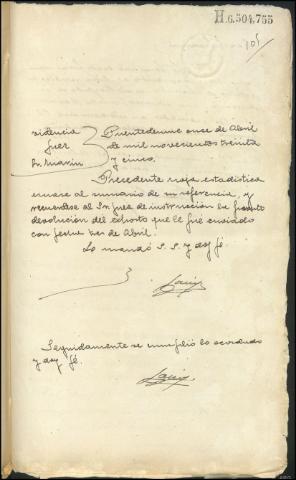 H.6.504.755
105
videncia
Juez
Sr. Marin
Puentedeume once de Abril
de mil novecientos treinta
y cinco.
Precedente hoja estadistica
unase al sumario de su referencia, y
recuerdese al Sr. Juez de instruccion la
devolución del exhorto que le fué enviado
con fecha tres de Abril.
Lo mandó S. S. y doy fé.
Seguidamente se cumplió lo acordado
y doy fé.